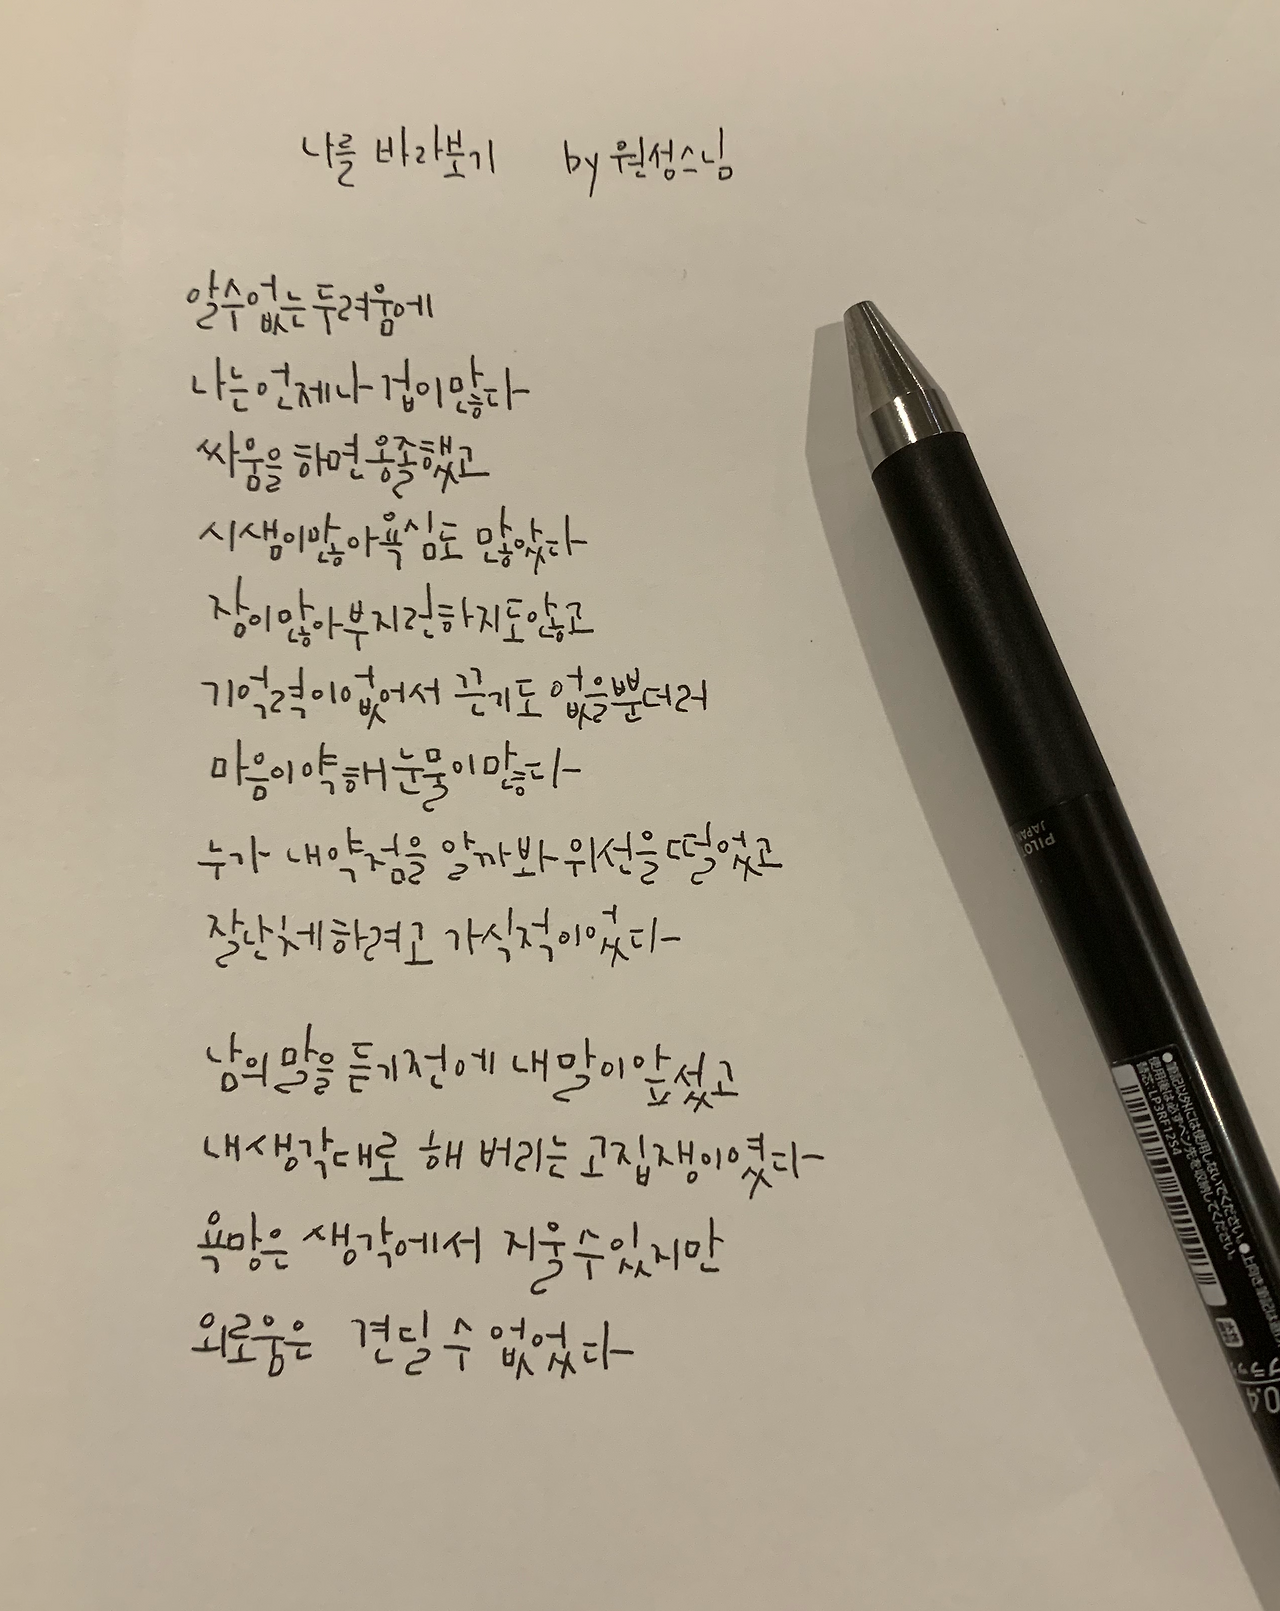 나를 바라보기 by 원성스님
알수없는두려움에
나는언제나 겁이많다
싸움을 하면 옹졸했고
시샘이많아욕심도 많았다
잠이많아부지런하지도않고
기억력이없어서 끈기도 없을뿐더러
마음이약해눈물이많다
누가 내약점을 알까봐 위선을떨었고
잘난체하려고 가식적이었다
남의 말을 듣기전에 내말이앞섰고
내생각대로 해 버리는 고집쟁이였다
욕망은 생각에서 지울수있지만
외로움은 견딜 수 없었다
PILOT
JAPAN
●筆記以外には使用しないでください。●上向き筆記は
使用後は必ずペン先を収納してください。
替芯:LP3RF12S4
0.4